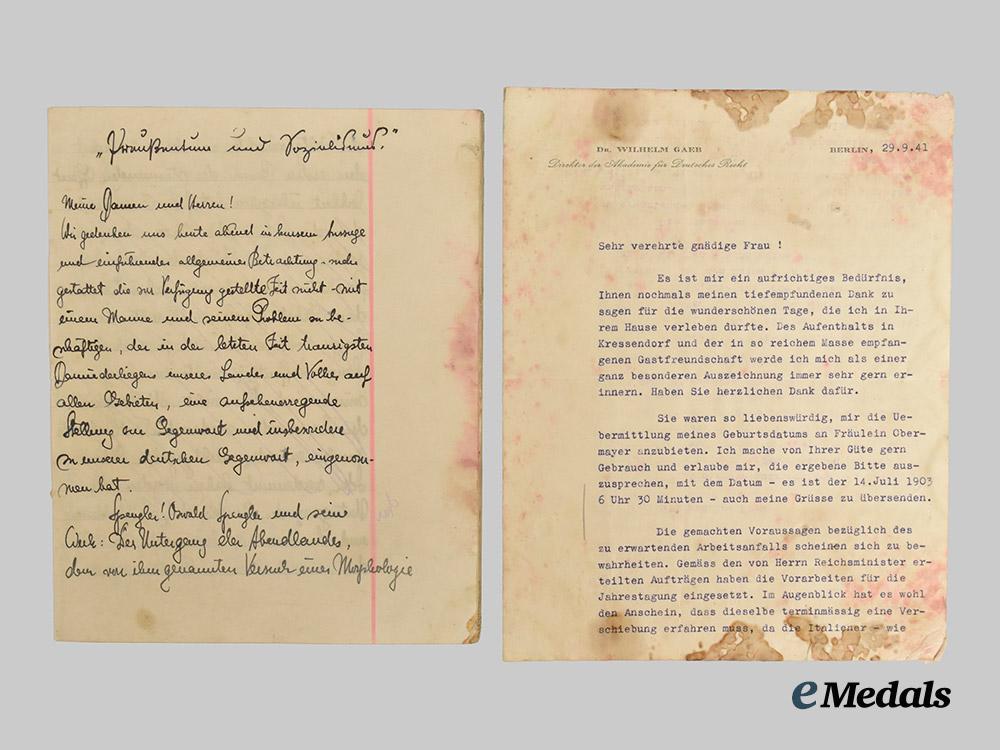 „Preußentum und Sozialismus."
Meine Damen und Herren!
Wir gedenken uns heute abend in kurzem Auszuge
und einführender allgemeiner Betrachtung – mehr
gestattet die zur Verfügung gestellte Zeit nicht – mit
einem Manne und seinem Problem zu be-
schäftigen, der in der letzten Zeit traurigsten
Daniederliegens unseres Landes und Volkes auf
allen Gebieten, eine aufsehenerregende
Stellung zur Gegenwart und insbesondere
zu unserer deutschen Gegenwart, eingenom-
men hat.
Spengler! Oswald Spengler und sein
Werk: Der Untergang des Abendlandes,
dem von ihm genannten Versuch einer Morphologie
Dr. Wilhelm Gaeb
Direktor der Akademie für Deutsches Recht
Berlin, 29.9.41
Sehr verehrte gnädige Frau !
Es ist mir ein aufrichtiges Bedürfnis,
Ihnen nochmals meinen tiefempfundenen Dank zu
sagen für die wunderschönen Tage, die ich in Ih-
rem Hause verleben durfte. Des Aufenthalts in
Kressendorf und der in so reichem Masse empfan-
genen Gastfreundschaft werde ich mich als einer
ganz besonderen Auszeichnung immer sehr gern er-
innern. Haben Sie herzlichen Dank dafür.
Sie waren so liebenswürdig, mir die Ue-
bermittlung meines Geburtsdatums an Fräulein Ober-
mayer anzubieten. Ich mache von Ihrer Güte gern
Gebrauch und erlaube mir, die ergebene Bitte aus-
zusprechen, mit dem Datum – es ist der 14.Juli 1903
6 Uhr 30 Minuten – auch meine Grüsse zu übersenden.
Die gemachten Voraussagen bezüglich des
zu erwartenden Arbeitsanfalls scheinen sich zu be-
wahrheiten. Gemäss den von Herrn Reichsminister er-
teilten Aufträgen haben die Vorarbeiten für die
Jahrestagung eingesetzt. Im Augenblick hat es wohl
den Anschein, dass dieselbe terminmässig eine Ver-
schiebung erfahren muss, da die Italiener – wie
eMedals